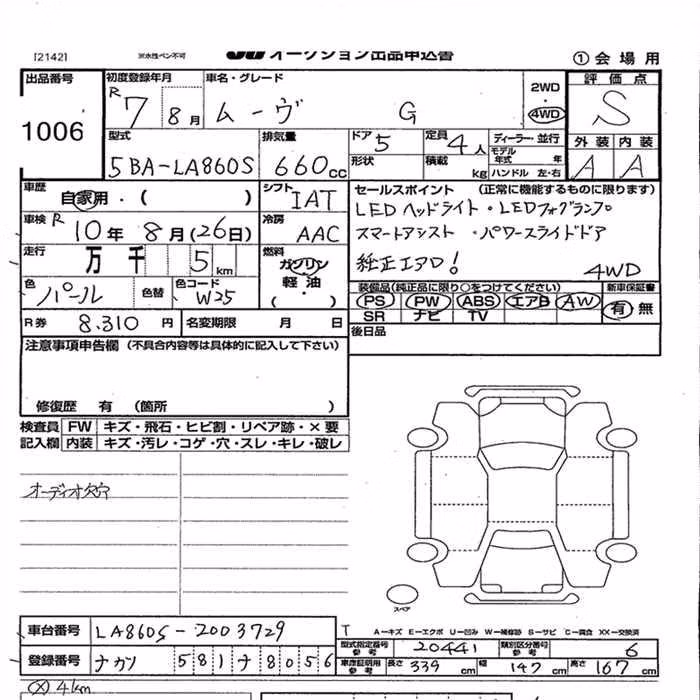 [2142] ※水性ペン不可 JU オークション出品申込書 ①会場用
出品番号 初度登録年月 車名・グレード 2WD 評価点
1006 R7 8月 ムーヴ G 4WD S
型式 排気量 ドア 5 定員 4人 ディーラー・並行 外装 内装
5BA-LA860S 660cc 形状 積載 kg モデル年式 年 ハンドル 左・右 A A
車歴 自家用・( ) シフト IAT セールスポイント (正常に機能するものに限ります)
車検 R10年 8月(26日) 冷房 AAC LEDヘッドライト・LEDフォグランプ
走行 万 千 5km 燃料 ガソリン 軽油 (・) スマートアシスト・パワースライドドア
純正エアロ! 4WD
色 パール 色替 色コード W25 装備品(純正品に限り○をつけてください) 新車保証書
PS PW ABS エアB AW 有 無
R券 8.310円 名変期限 月 日 SR ナビ TV
注意事項申告欄(不具合内容等は具体的に記入して下さい) 後日品
修復歴 有 (箇所 )
検査員 FW キズ・飛石・ヒビ割・リペア跡・×要
記入欄 内装 キズ・汚レ・コゲ・穴・スレ・キレ・破レ
オーディオ欠品
スペア
車台番号 LA860S-2003729 T A―キズ E―エクボ U―凹み W―補修跡 S―サビ C―腐食 XX―交換済
型式指定番号 参考 20441 類別区分番号 参考 6
登録番号 ナカソ 581ナ8056 車庫証明用 参考 長さ 339cm 幅 147cm 高さ 167cm
4km